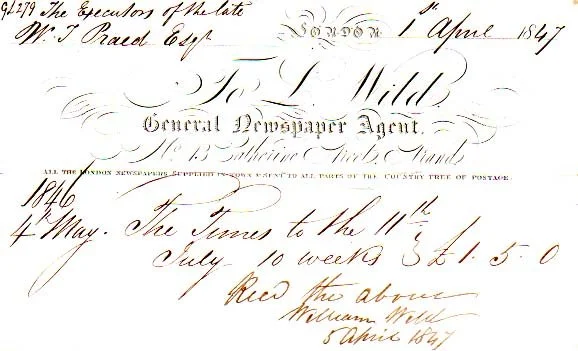 The Executors of the late
W. T. Praed Esqr
LONDON 1st April 1847
To L. Wild,
General Newspaper Agent.
No 13 Catherine Street, Strand
ALL THE LONDON NEWSPAPERS SUPPLIED IN TOWN & SENT TO ALL PARTS OF THE COUNTRY FREE OF POSTAGE
1846
4th May. The Times to the 11th
July 10 weeks £1. 5. 0
Recd the above
William Wild
5 April 1847